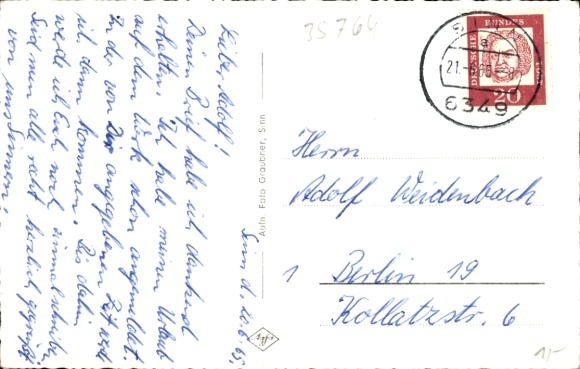 Sinn d. 20.6.65.
Lieber Adolf!
Deinen Brief habe ich dankend
erhalten. Ich habe meinen Urlaub
auf dem Werk schon angemeldet.
In der von Dir angegebenen Zeit werde
ich dann kommen. Bis dahin
werde ich Euch noch einmal schreiben.
Seid nun alle recht herzlich gegrüßt
von uns Sinnern.
Aufn. Foto Graubner, Sinn
35764
DEUTSCHE BUNDESPOST
20
21.-6.65
a
6349
Herrn
Adolf Weidenbach
1 Berlin 19
Kollatzstr. 6
1,-